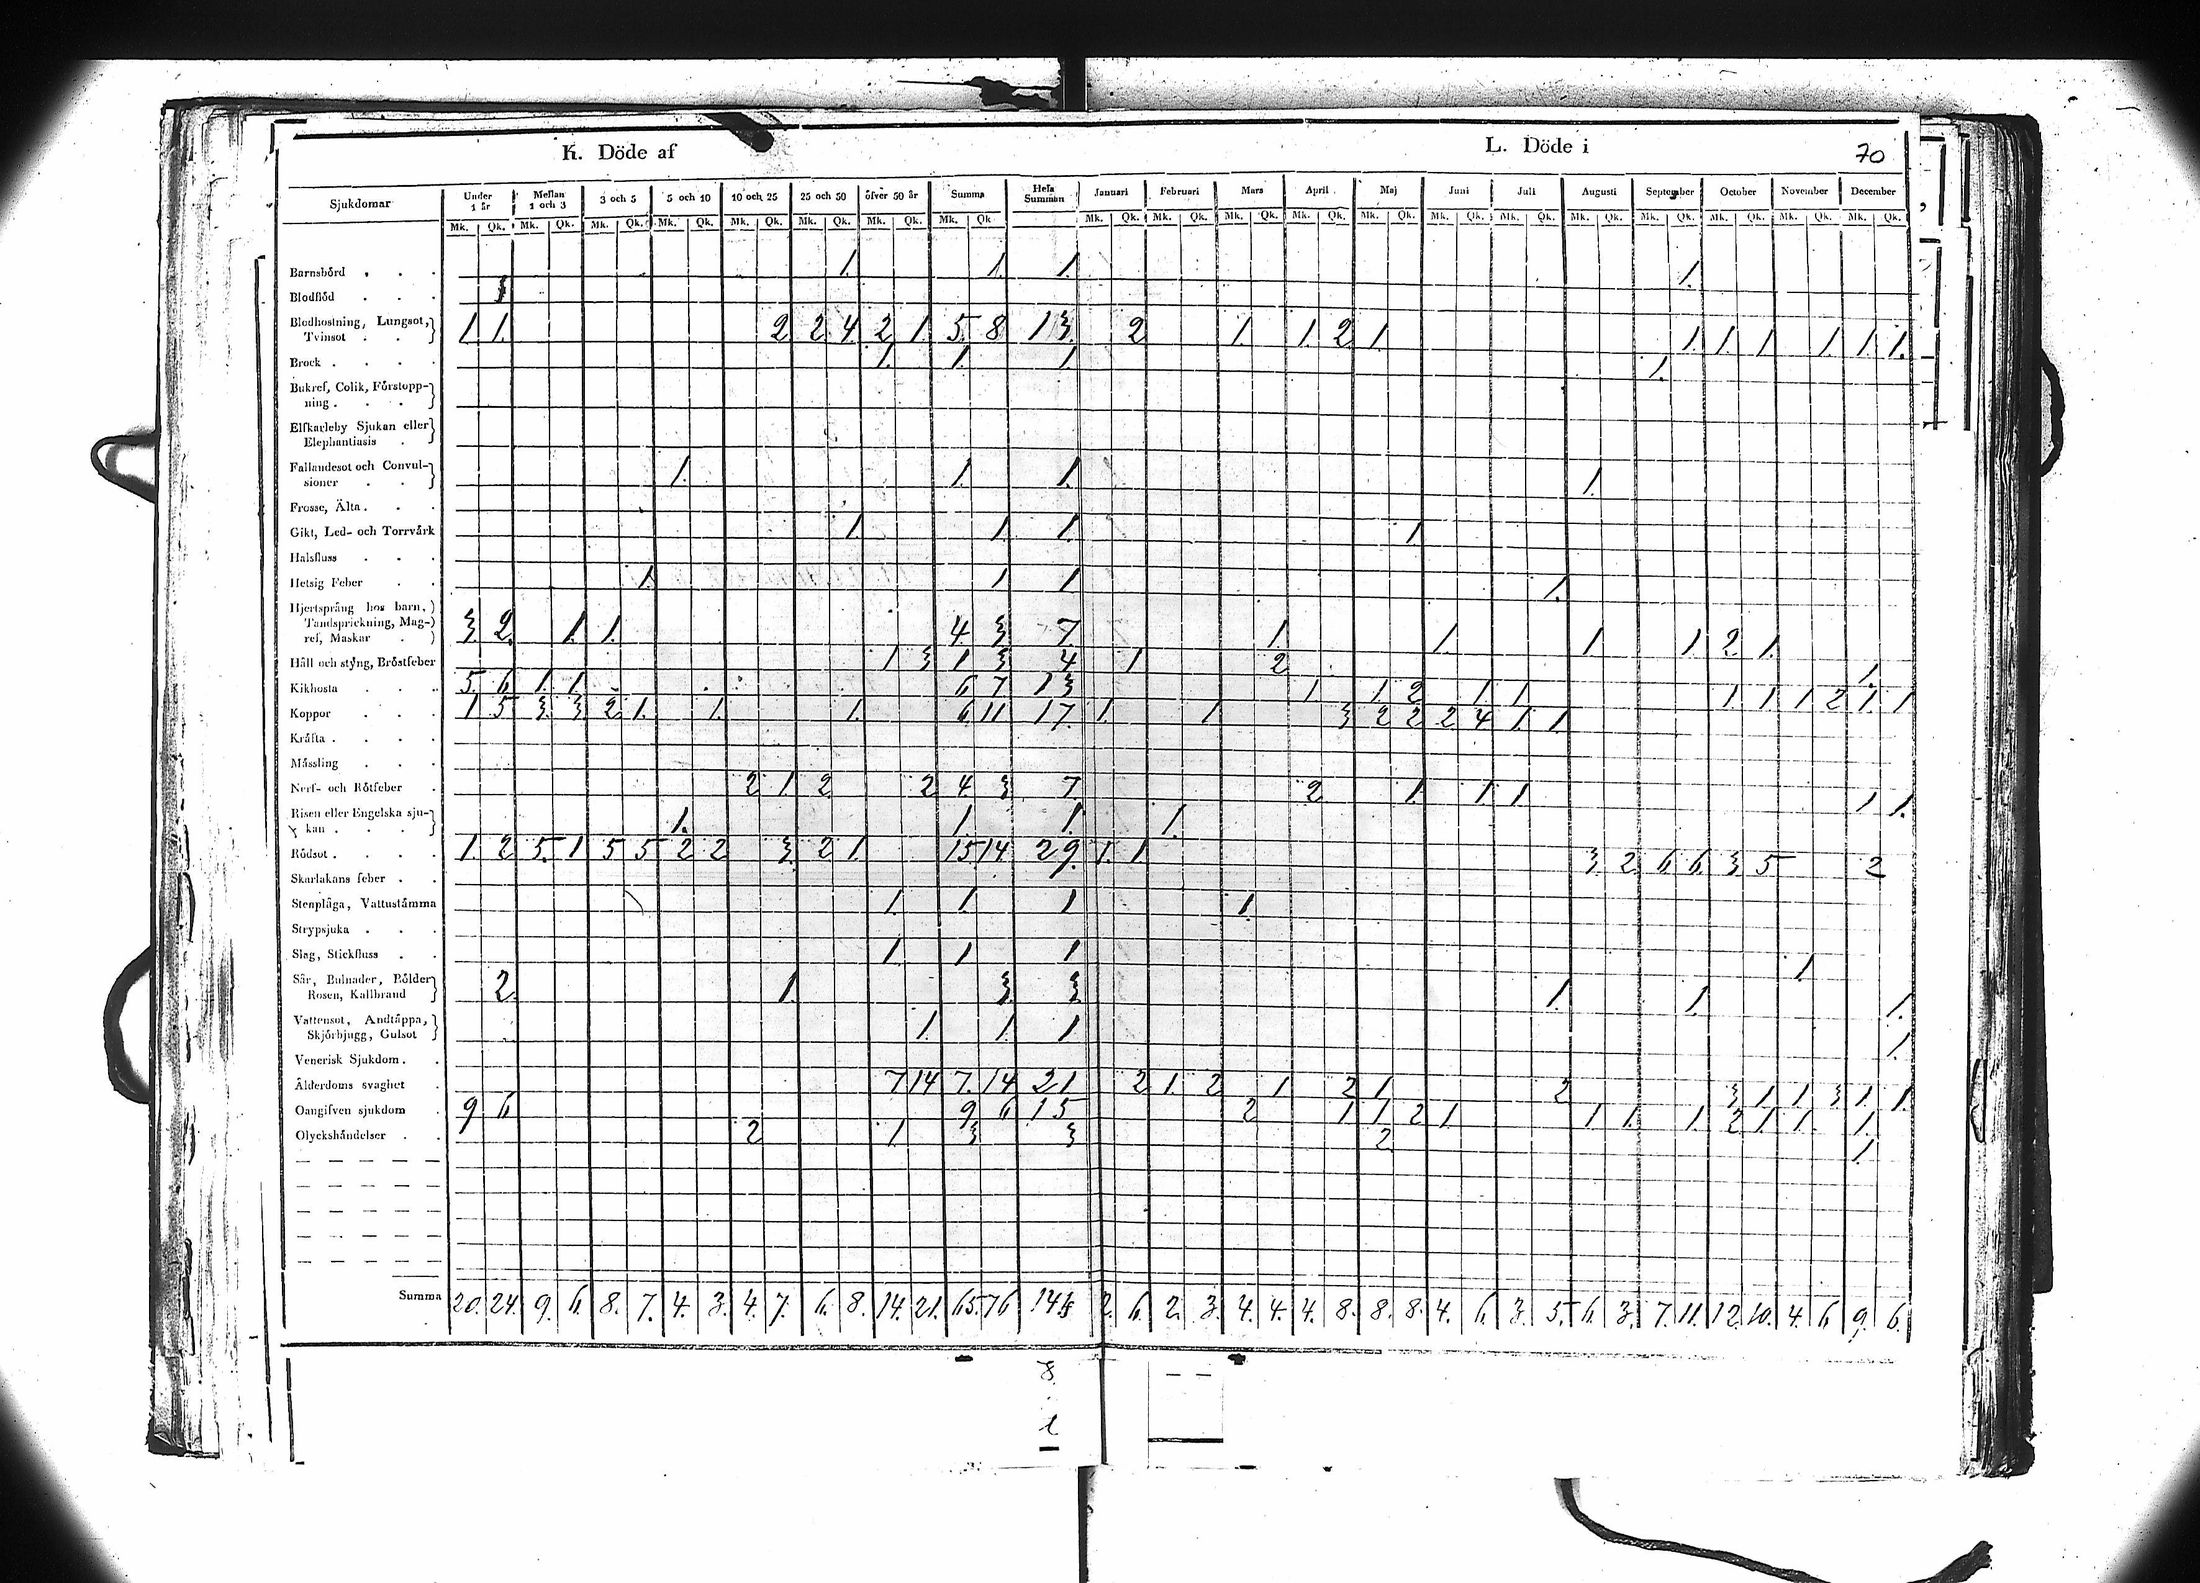 K. Döde af
L. Döde i 70
Sjukdomar Under 1 år Mellan 1 och 3 3 och 5 5 och 10 10 och 25 25 och 50 öfver 50 år Summa Hela Summan Januari Februari Mars April Maj Juni Juli Augusti September October November December
Mk. Qk. Mk. Qk. Mk. Qk. Mk. Qk. Mk. Qk. Mk. Qk. Mk. Qk. Mk. Qk. Mk. Qk. Mk. Qk. Mk. Qk. Mk. Qk. Mk. Qk. Mk. Qk. Mk. Qk. Mk. Qk. Mk. Qk. Mk. Qk. Mk. Qk. Mk. Qk.
Barnsbörd . . . 1. 1. 1. 1.
Blodflöd . . .
Blodhostning, Lungsot,
Tvinsot . . 1. 1. 2 2 4 2 1 5. 8 13. 2 1. 1. 2. 1. 1. 1. 1. 1. 1. 1.
Brock . . . . 1. 1. 1. 1.
Bukref, Colik, Förstopp-
ning . . .
Elfkarleby Sjukan eller
Elephantiasis .
Fallandesot och Convul-
sioner . . 1. 1. 1. 1.
Frosse, Älta . . .
Gikt, Led- och Torrvärk 1. 1. 1. 1.
Halsfluss . . .
Hetsig Feber . . 1. 1. 1. 1.
Hjertsprång hos barn,
Tandsprickning, Mag-
ref, Maskar . 3 2. 1. 1. 4. 3 7. 1. 1. 1. 1. 2. 1.
Håll och styng, Bröstfeber 1 3 1 3 4 1 2. 1.
Kikhosta . . . 5. 6. 1. 1. 6 7 13 1 1 2 1 1 1 1 1 2 1. 1
Koppor . . . 1 5 3. 3 2 1. 1. 1. 6 11 17. 1. 1. 3 2 2 2 4 1. 1.
Kräfta . . . .
Mässling . . .
Nerf- och Rötfeber . 2 1. 2. 2 4. 3 7. 2 1. 1 1 1 1.
Risen eller Engelska sju-
kan . . . . 1. 1. 1. 1.
Rödsot . . . . 1. 2 5. 1 5 5 2 2 3. 2 1. 15 14 29. 1. 1 3. 2. 6. 6. 3 5 2
Skarlakans feber . .
Stenplåga, Vattustämma 1. 1. 1 1.
Strypsjuka . . .
Slag, Stickfluss . . 1 1 1 1
Sår, Bulnader, Bölder
Rosen, Kallbrand 2. 1. 3. 3 1. 1. 1.
Vattensot, Andtäppa,
Skjörbjugg, Gulsot 1. 1. 1 1.
Venerisk Sjukdom . .
Ålderdoms svaghet . 7 14 7. 14 21 2 1. 2 1 2 1 2 3 1 1 3 1. 1.
Oangifven sjukdom . 9 6. 9 6 15 2 1 1 2 1 1 1. 1. 2. 1. 1. 1.
Olyckshändelser . . 2. 1 3 3 2. 1.
Summa 20. 24. 9. 6. 8. 7. 4. 3. 4. 7. 6. 8. 14. 21. 65. 76 2. 6. 2. 3. 4. 4. 4. 8. 8. 8. 4. 6. 3. 5. 6. 3. 7. 11. 12. 10. 4. 6 9. 6.